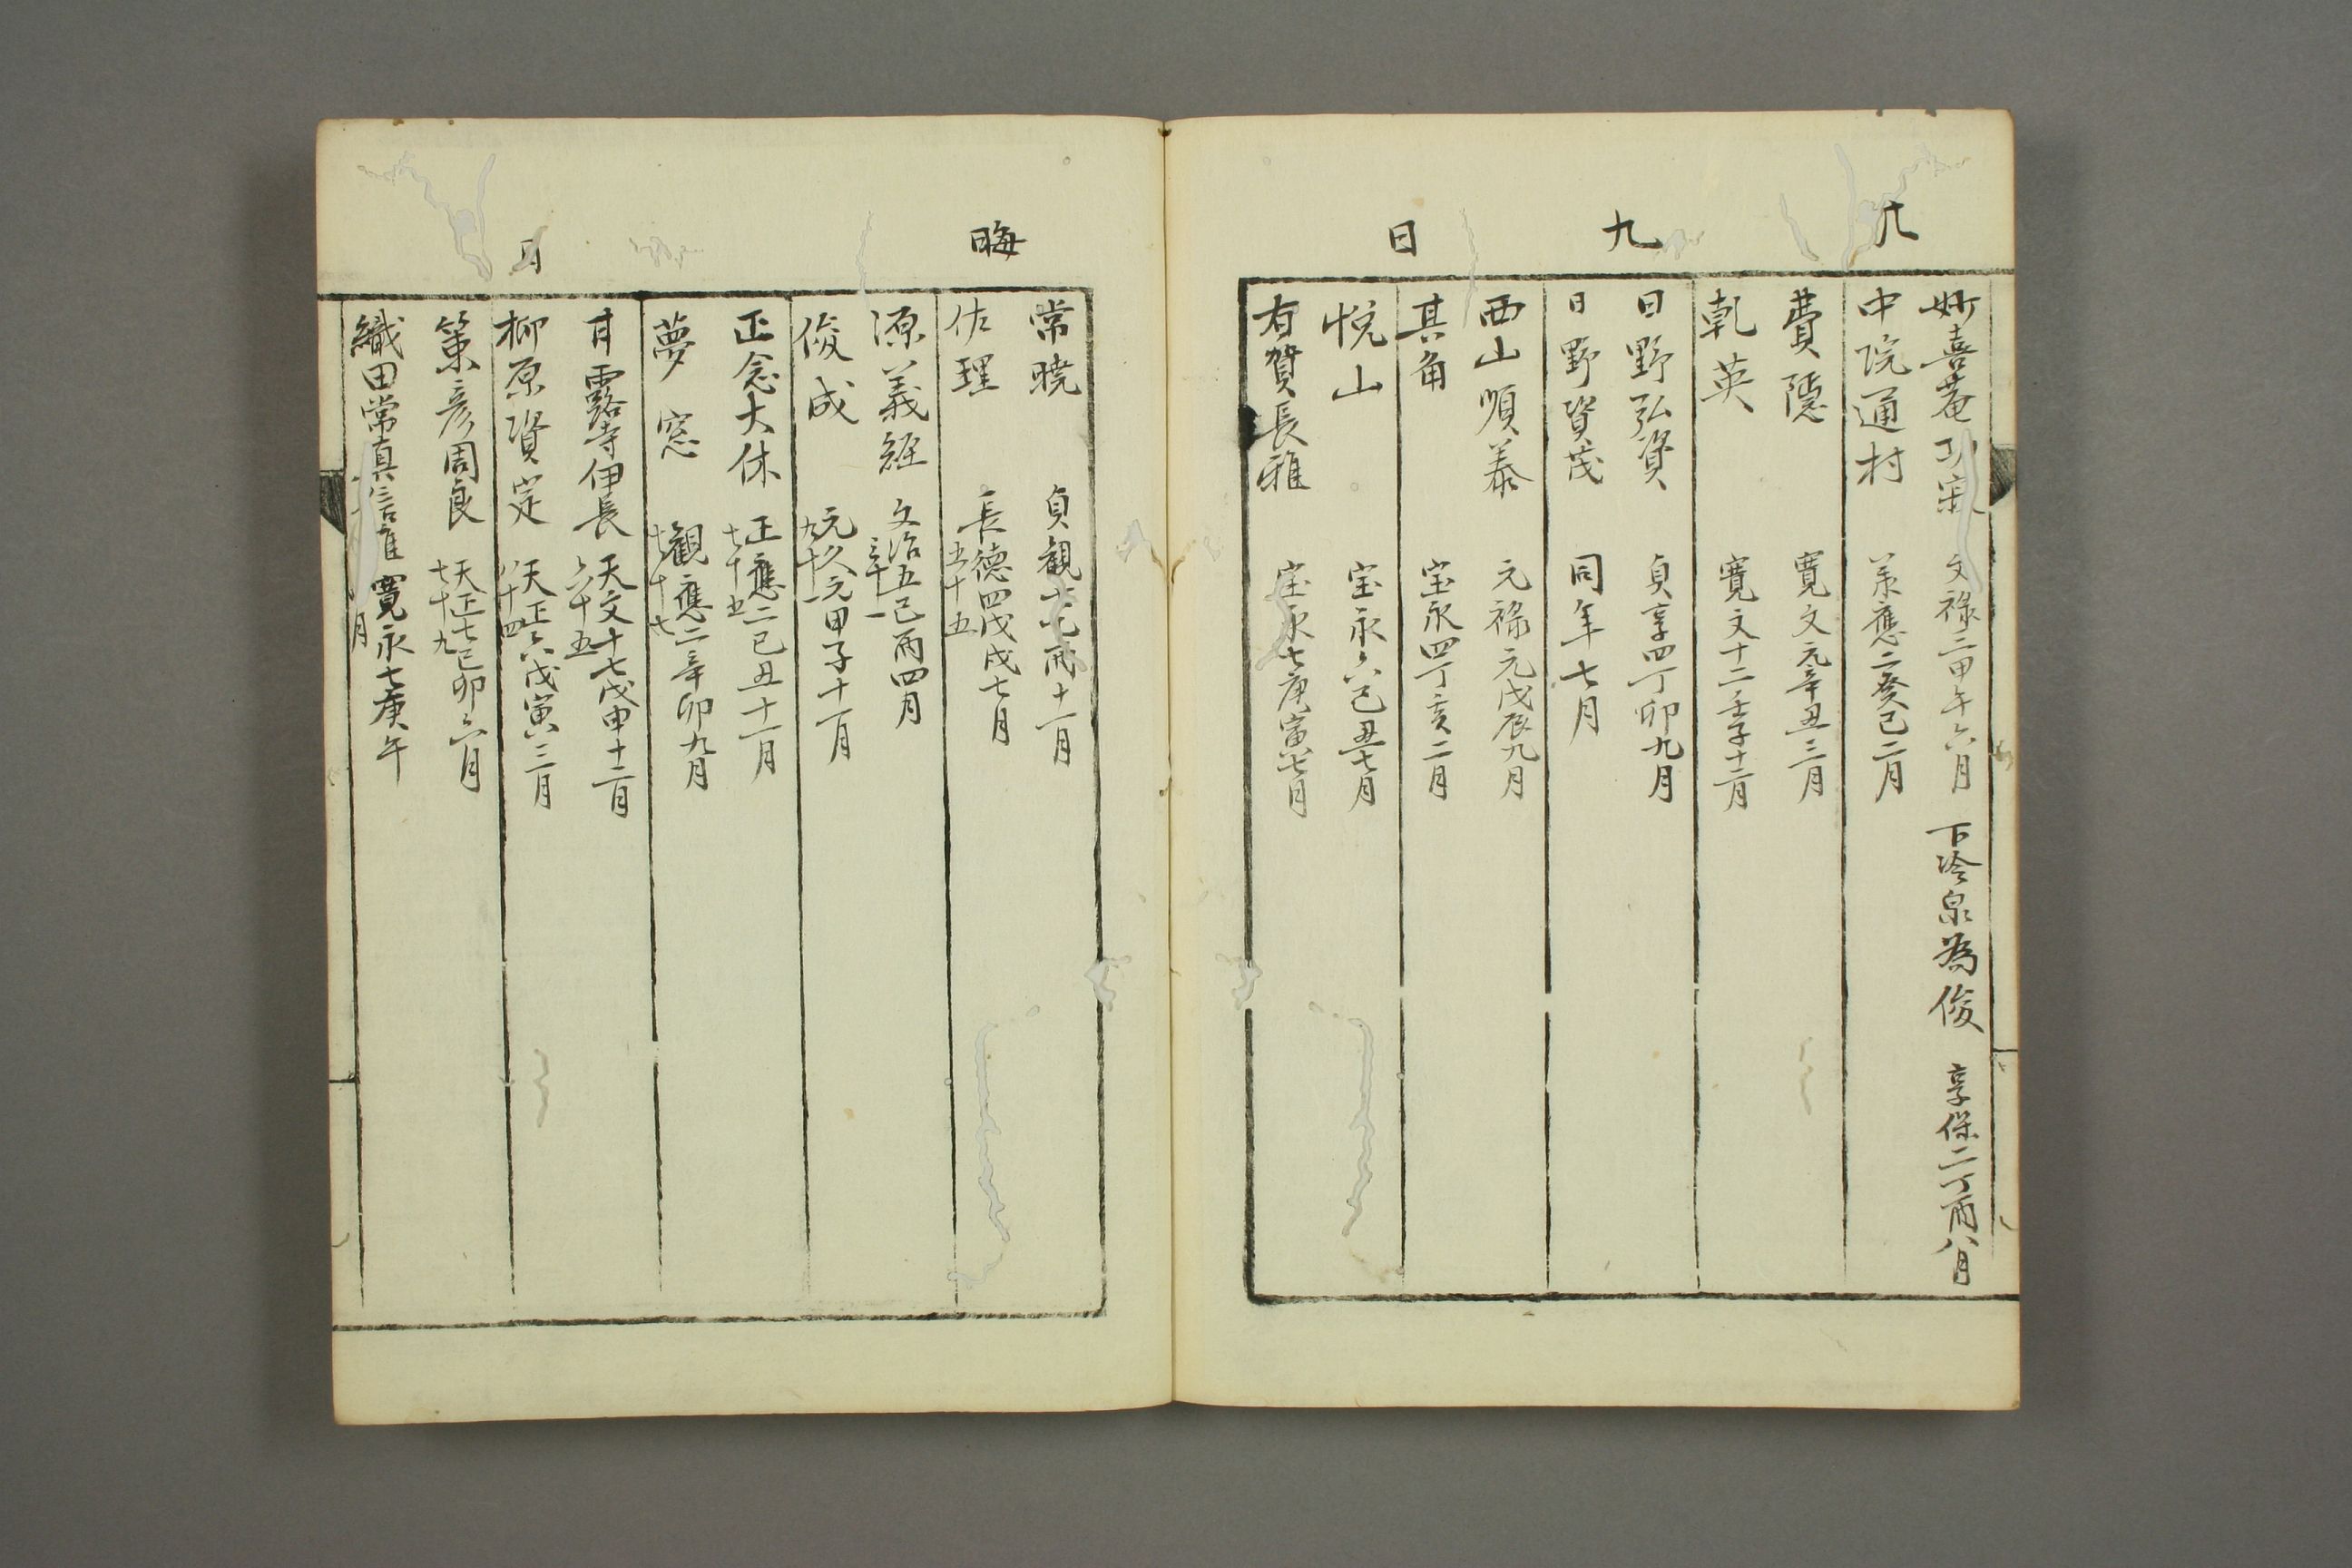 廿
九
日
妙喜菴功叔 文禄三甲午六月 下冷泉為俊 享保二丁酉八月
中院通村 承應二癸巳二月
費隠 寛文元辛丑三月
乾英 寛文十二壬子十二月
日野弘資 貞享四丁卯九月
日野資茂 同年七月
西山順泰 元禄元戊辰九月
其角 宝永四丁亥二月
悦山 宝永六己丑七月
有賀長雅 宝永七庚寅七月
晦
日
常暁 貞観 十一月
佐理 長徳四戊戌七月 五十五
源義経 文治五己酉四月 三十一
俊成 元久元甲子十一月 九十一
正念大休 正應二己丑十一月 七十五
夢窓 観應二辛卯九月 七十七
甘露寺伊長 天文十七戊申十二月 六十五
柳原資定 天正六戊寅三月 八十四
策彦周良 天正七己卯六月 七十九
織田常真信雄 寛永七庚午 月